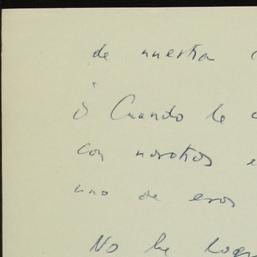 de nuestra
¿ Cuando le
con nosotros
uno de esos
No he